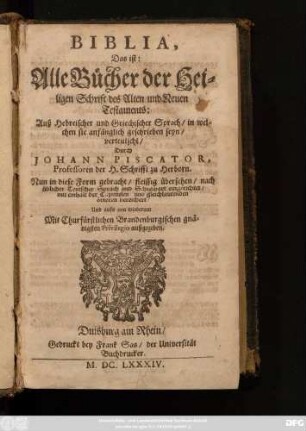 BIBLIA,
Das ist:
Alle Bücher der Hei-
ligen Schrift des Alten und Neuen
Testaments:
Auß Hebreischer und Griechischer Sprach / in wel-
chen sie anfänglich geschrieben seyn /
verteutscht /
Durch
JOHANN PISCATOR,
Professoren der H. Schrifft zu Herborn.
Nun in diese Form gebracht / fleissig übersehen / nach
Mit Churfürstlichen Brandenburgischen gnä-
digsten Privilegio außgegeben.
Duisburg am Rhein /
Gedruckt bey Frantz Sas / der Universität
Buchdrucker.
M. DC. LXXXIV.